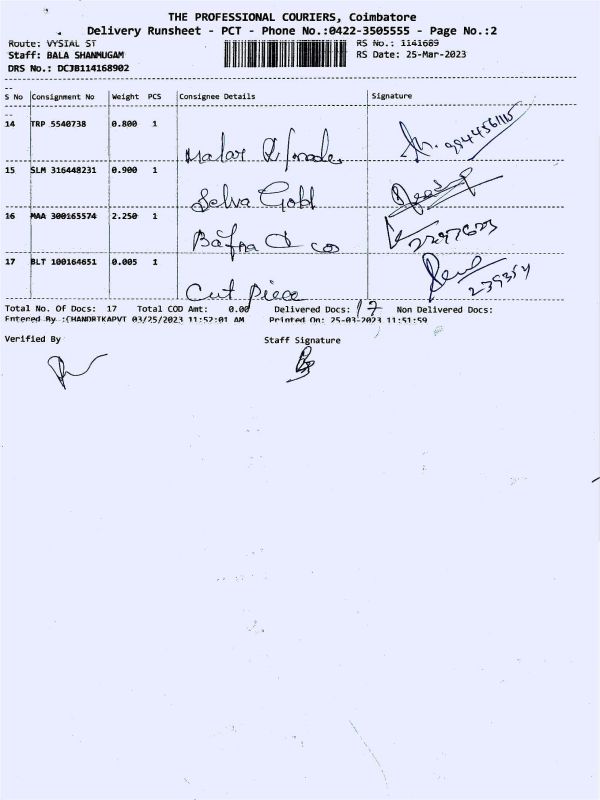 THE PROFESSIONAL COURIERS, Coimbatore
Delivery Runsheet - PCT - Phone No.:0422-3505555 - Page No.:2
Route: VYSIAL ST RS No.: 1141689
Staff: BALA SHANMUGAM RS Date: 25-Mar-2023
DRS No.: DCJB114168902
S No Consignment No Weight PCS Consignee Details Signature
14 TRP 5540738 0.800 1
Malar
15 SLM 316448231 0.900 1
Selva Gold
16 MAA 300165574 2.250 1
Bafna & co
17 BLT 100164651 0.005 1
239354
Cut piece
Total No. Of Docs: 17 Total COD Amt: 0.00 Delivered Docs: 17 Non Delivered Docs:
Entered By :CHANDRTKAPVT 03/25/2023 11:52:01 AM Printed On: 25-03-2023 11:51:59
Verified By Staff Signature